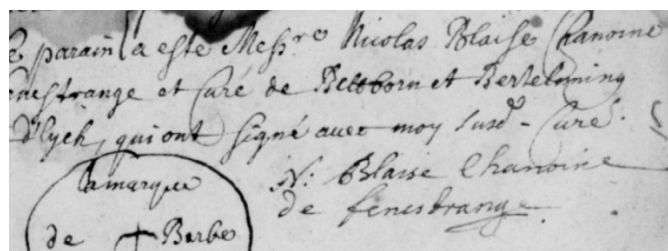 parain a esté Mess.re Nicolas Blaise Chanoine
fenestrange et Curé de Bettborn et Bertelming
d'Eych, qui ont signé avec moy susd. Curé.
N: Blaise Chanoine
de fenestrange.
la marque
de + Barbe